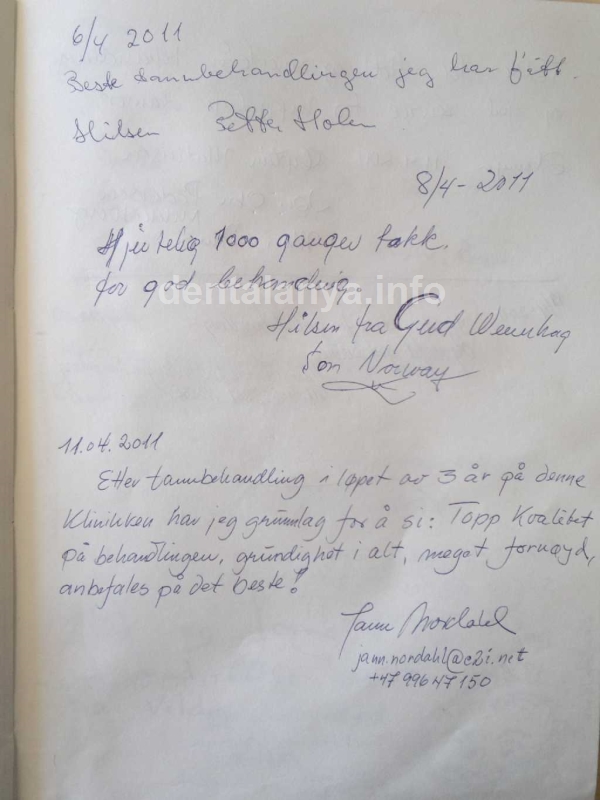 6/4 2011
Beste tannbehandlingen jeg har fått.
Hilsen Petter Holen
8/4-2011
Hjertelig 1000 ganger takk.
for god behandling.
dentalanya.info
Hilsen fra Gerd
from Norway
11.04.2011
Etter tannbehandling i løpet av 3 år på denne
Klinikken har jeg grunnlag for å si: Topp Kvalitet
på behandlingen, grundighet i alt, meget fornøyd,
anbefales på det beste!
Jann Nordahl
jann.nordahl@c2i.net
+47 99647150